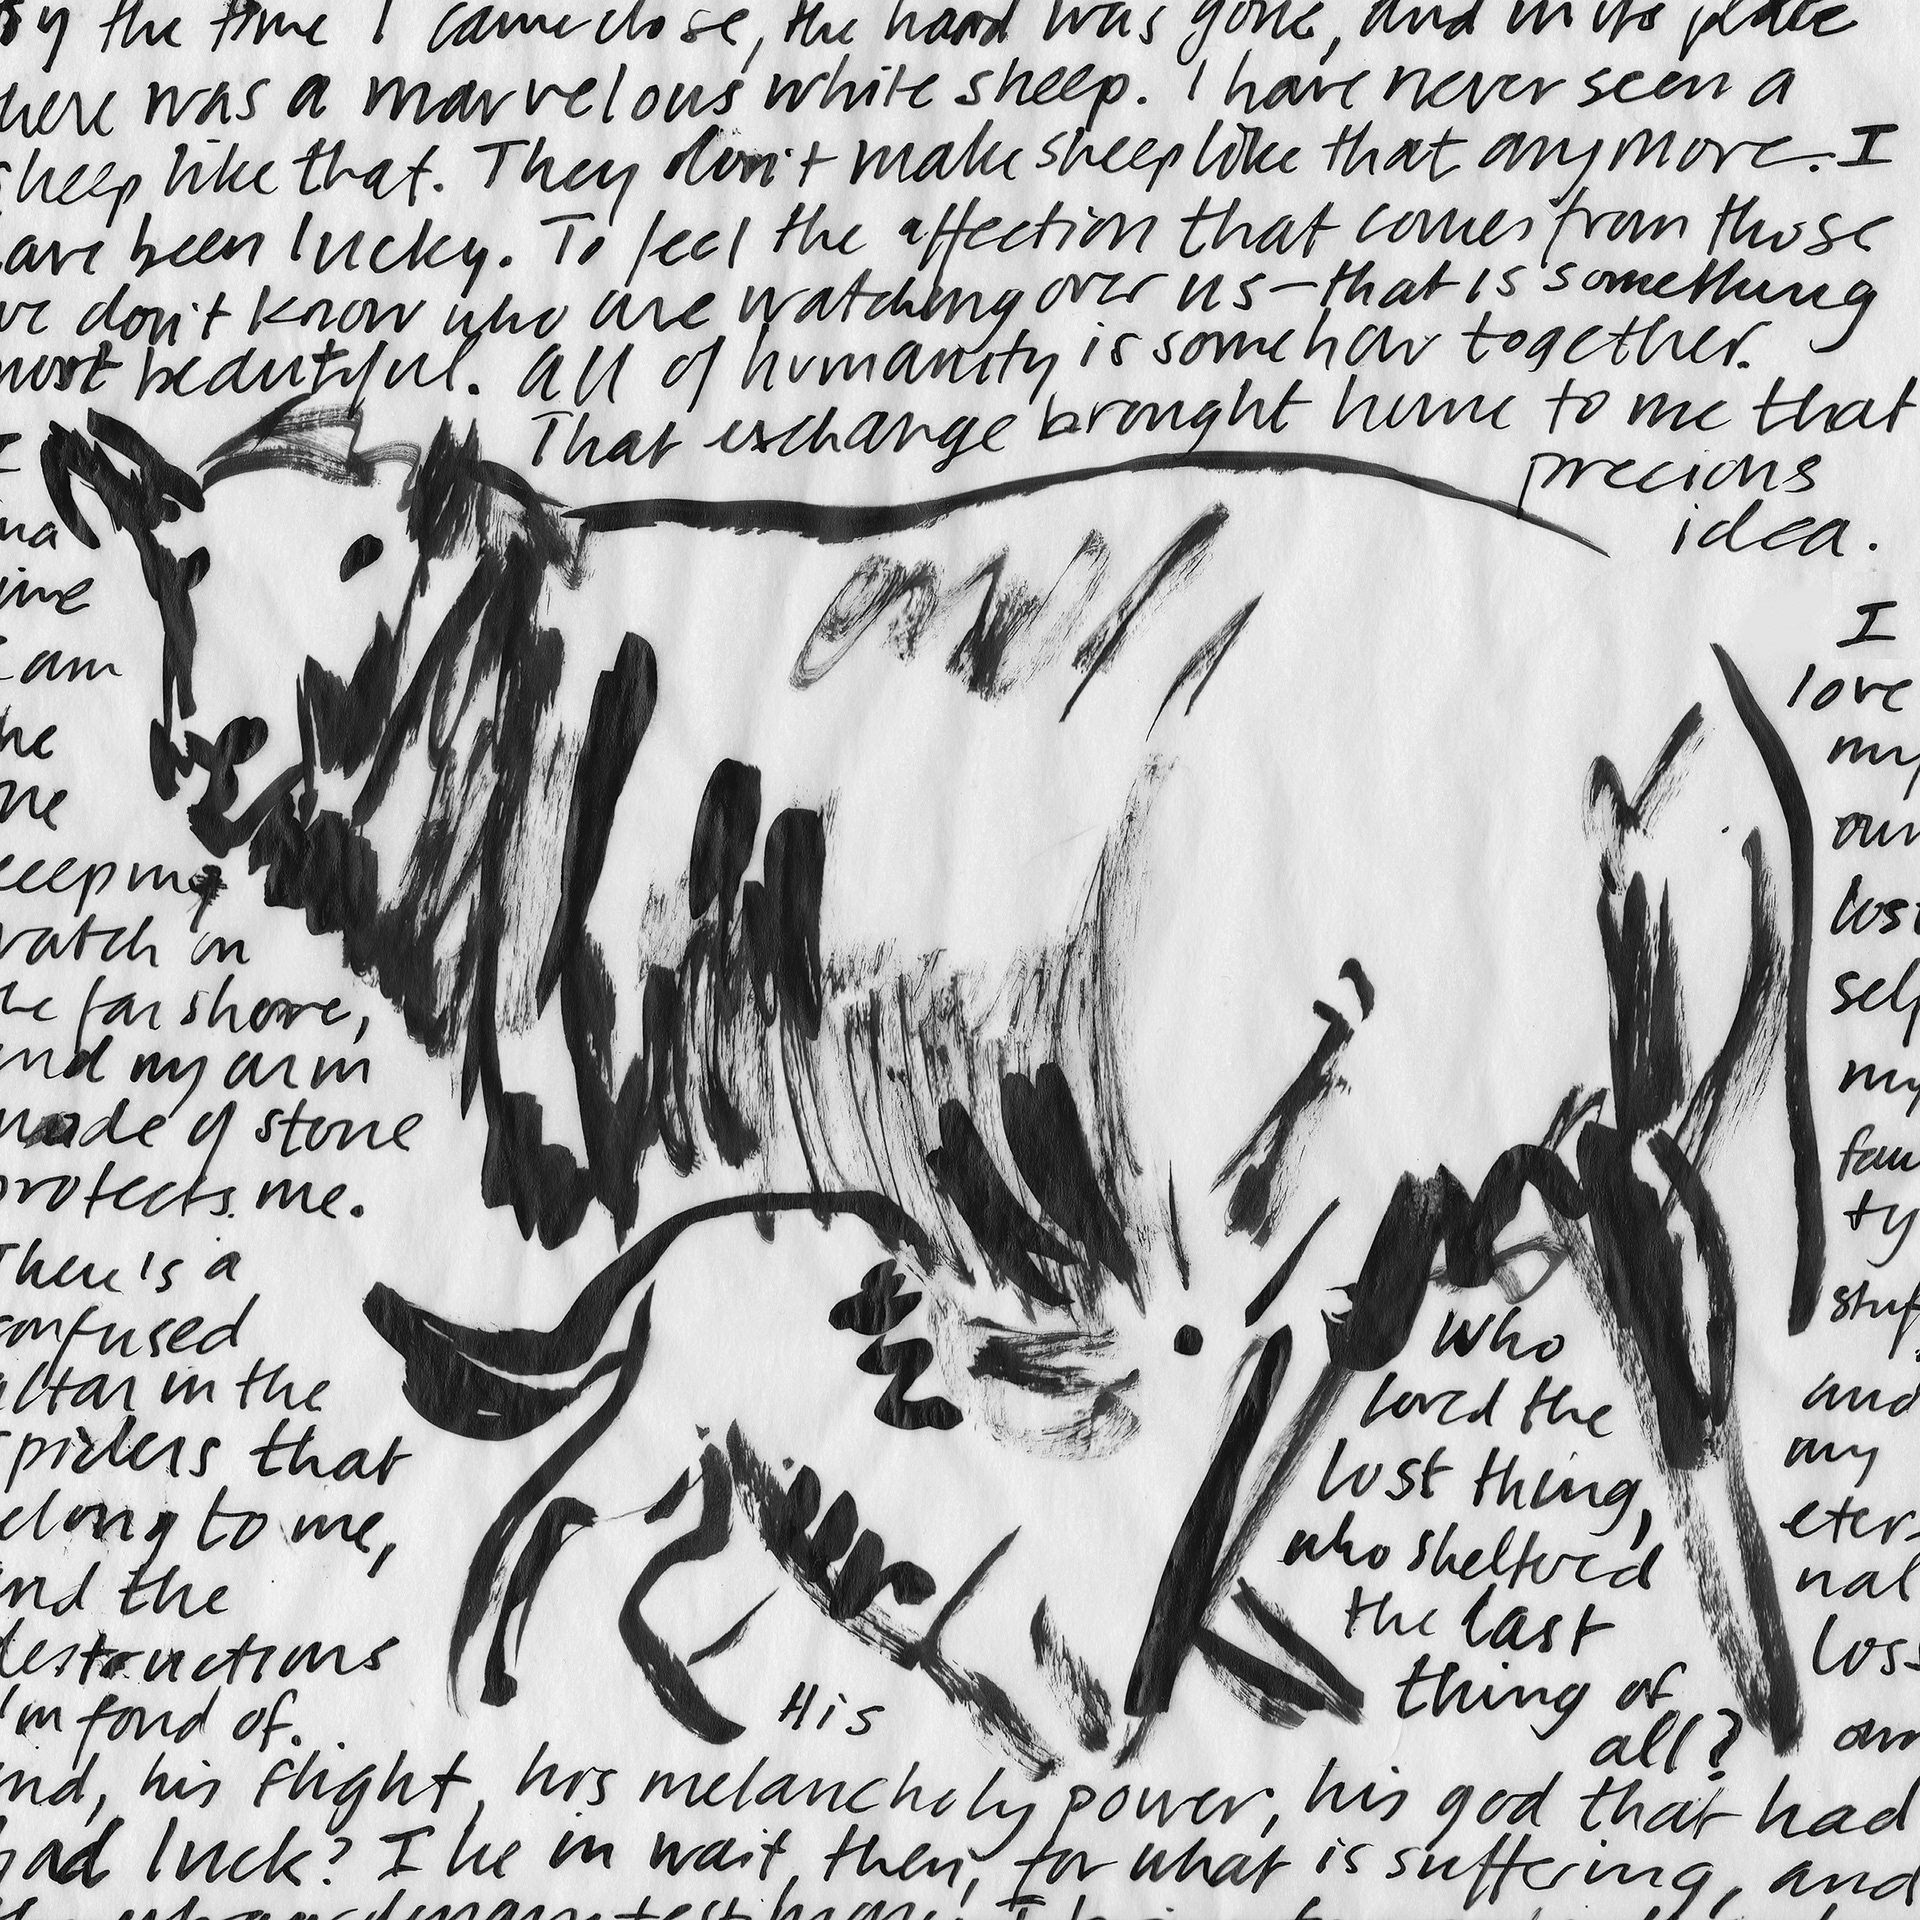 by the time I came close, the hand was gone, and in its place
here was a marvelous white sheep. I have never seen a
sheep like that. They don't make sheep like that anymore. I
ave been lucky. To feel the affection that comes from those
we don't know who are watching over us — that is something
most beautiful. All of humanity is somehow together.
That exchange brought home to me that
precious
idea.
I
na
ine
I am
he
ne
eeping
watch on
he far shore,
and my arm
made of stone
protects me.
There's a
confused
altar in the
spiders that
elong to me,
and the
destructions
I'm fond of.
I
love
my
own
lost
self
my
faul
ty
stuf
and
my
eter-
nal
loss
who
loved the
lost thing,
who sheltered
the last
thing of
all?
His
nd, his flight, his melancholy power, his god that had
bad luck? I lie in wait, then, for what is suffering, and